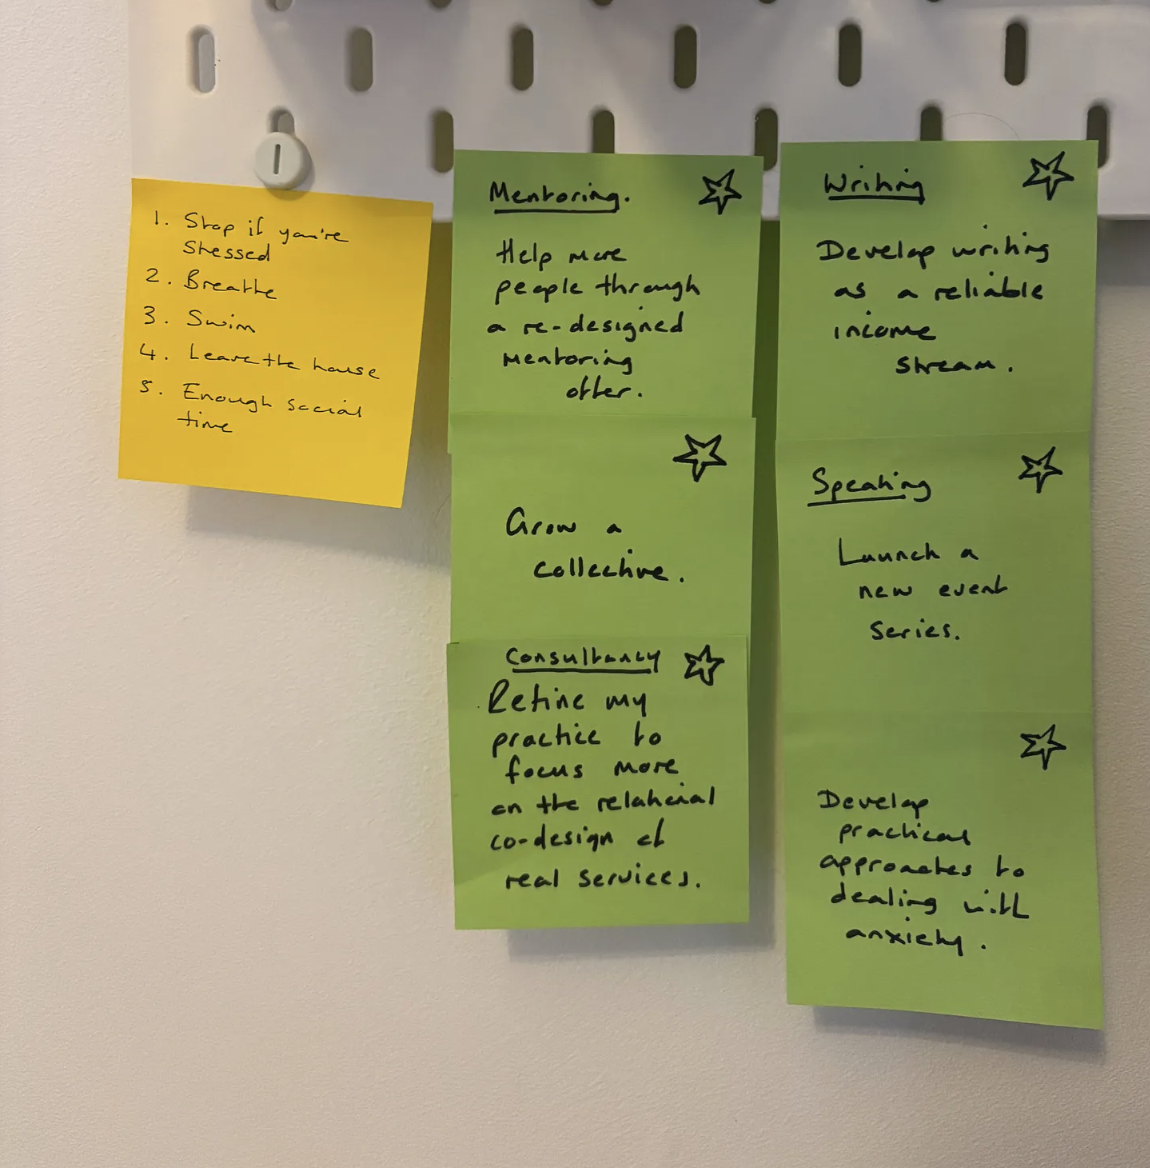 1. Stop if you're
stressed
2. Breathe
3. Swim
4. Leave the house
5. Enough social
time
Mentoring.
Help more
people through
a re-designed
mentoring
offer.
Grow a
collective.
Consultancy
Refine my
practice to
focus more
on the relational
co-design of
real services.
Writing
Develop writing
as a reliable
income
stream.
Speaking
Launch a
new event
series.
Develop
practical
approaches to
dealing with
anxiety.